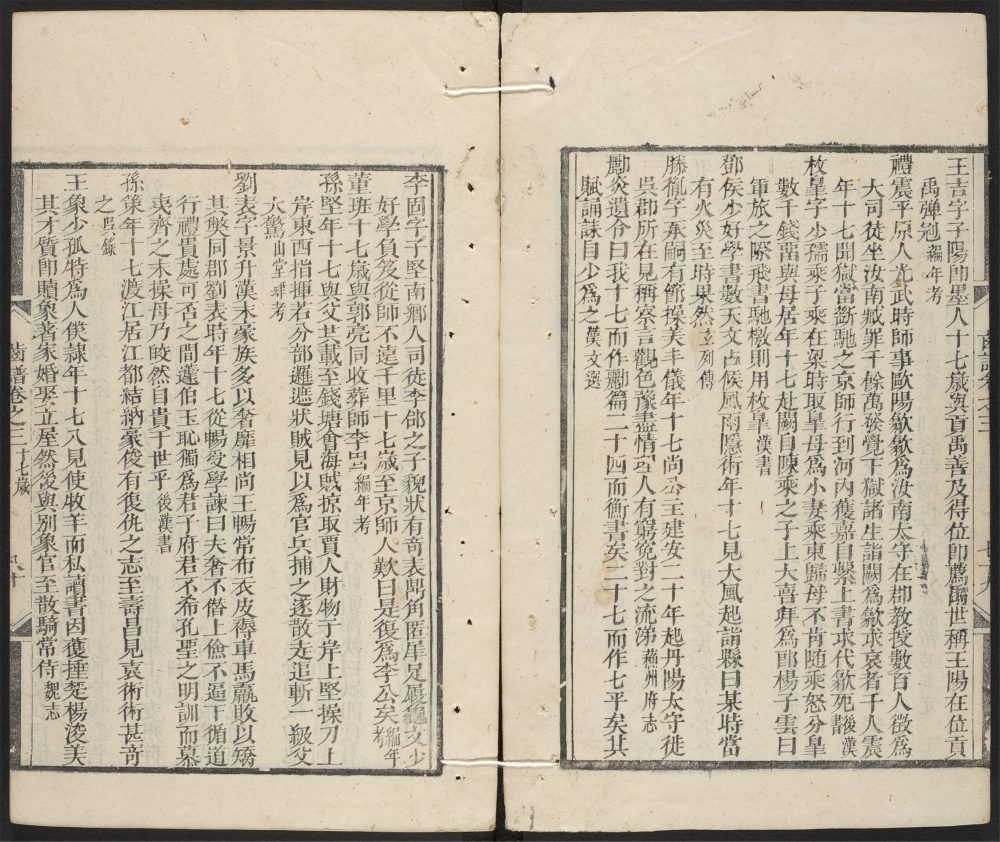 王吉字子陽即墨人十七歲與貢禹善及得位即薦禹世稱王陽在位貢
禹彈冠編年考
禮震平原人光武時師事歐陽歙歙爲汝南太守在郡教授數百人徵爲
大司徒坐汝南贓罪千餘萬發覺下獄諸生詣闕爲歙求哀者千人震
年十七聞獄當斷馳之京師行到河內獲嘉自繫上書求代歙死後漢
枚皋字少孺乘子乘在梁時取皋母爲小妻乘東歸母不肯隨乘怒分皋
數千錢畱與母居年十七赴闕自陳乘之子上大喜拜爲郎楊子雲曰
軍旅之際飛書馳檄則用枚皋漢書
鄧侯少好學書數天文占候風雨隱術年十七見大風起詣縣曰某時當
有火災至時果然立列傳
滕胤字承嗣有節操美丰儀年十七尚公主建安二十年起丹陽太守徙
吳郡所在見稱察言觀色務盡情理人有窮冤對之流涕蘇州府志
酈炎遺令曰我十七而作酈篇二十四而衡書矣二十七而作七平矣其
賦誦誄自少爲之漢文選
齒譜卷之三
七十九
李固字子堅南鄉人司徒李郃之子貌狀有奇表鼎角匿犀足履龜文少
好學負笈從師不遠千里十七歲至京師人歎曰是復爲李公矣編年考
董班十七歲與郭亮同收葬師李固編年考
孫堅年十七與父共載至錢塘會海賊掠取賈人財物于岸上堅操刀上
岸東西指揮若分部邏遮狀賊見以爲官兵捕之遂散走追斬一級父
大驚山堂肆考
劉表字景升漢末豪族多以奢靡相尚王暢常布衣皮褥車馬羸敗以矯
其弊同郡劉表時年十七從暢受學諫曰夫奢不僭上儉不逼下循道
行禮貴處可否之間蘧伯玉恥獨爲君子府君不希孔聖之明訓而慕
夷齊之末操毋乃皎然自貴于世乎後漢書
孫策年十七渡江居江都結納豪俊有復仇之志至壽昌見袁術術甚奇
之吳錄
王象少孤特爲人僕隸年十七八見使牧羊而私讀書因獲捶楚楊浚美
其才質即贖象著家婚娶立屋然後與別象官至散騎常侍魏志
齒譜卷之三十七歲
八十